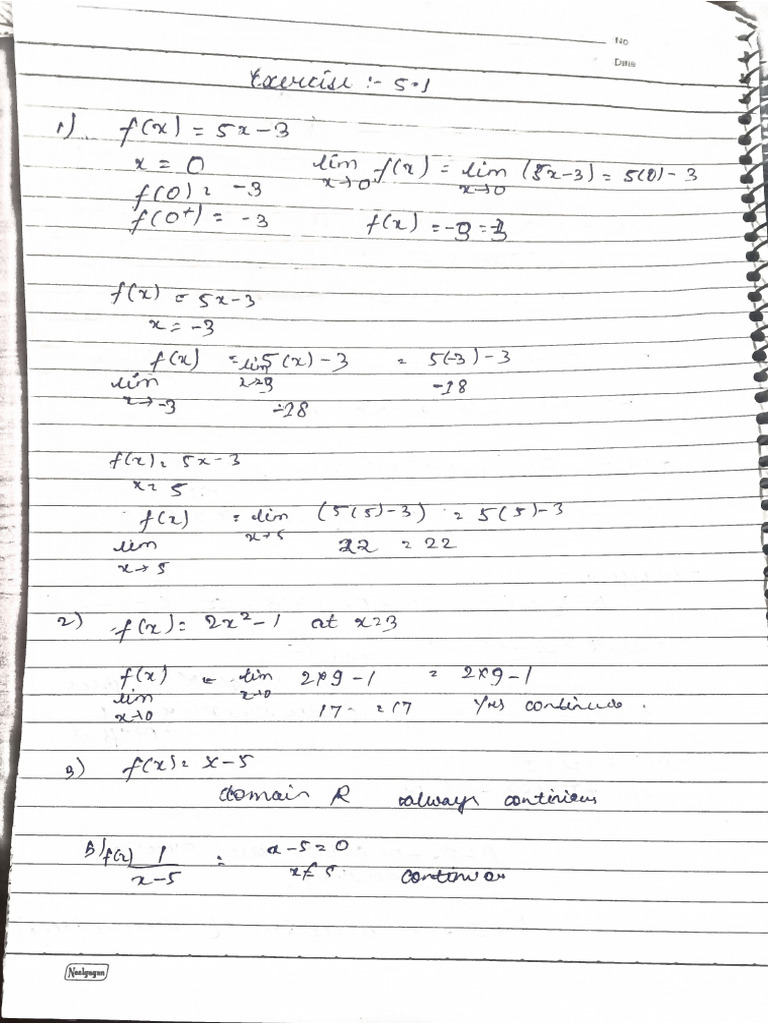 No
Date
Exercise :- 5.1
1) f(x) = 5x-3
x = 0 lim x→0 f(x) = lim x→0 (5x-3) = 5(0)-3
f(0) = -3
f(0+) = -3 f(x) = -3 = -3
f(x) = 5x-3
x = -3
f(x) = lim 5(x)-3 = 5(-3)-3
lim x→-3 -18 -18
f(x) = 5x-3
x = 5
f(x) = lim x→5 (5(5)-3) = 5(5)-3
lim x→5 22 = 22
2) f(x) = 2x²-1 at x=3
f(x) = lim x→0 2×9-1 = 2×9-1
lim x→0 17 = 17 Yes continuo.
3) f(x) = x-5
domain R always continious
B) f(x) 1/x-5 = x-5=0
x≠5 continuos
Neelgagan